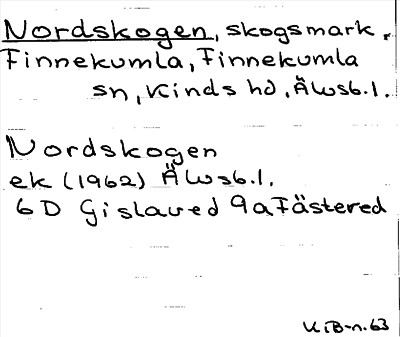 Nordskogen, skogsmark,
Finnekumla, Finnekumla
sn, Kinds hd, Älvsb.l.
Nordskogen
ek (1962) Älvsb.l.
6D Gislaved 9a Fästered
KiB-n. 63